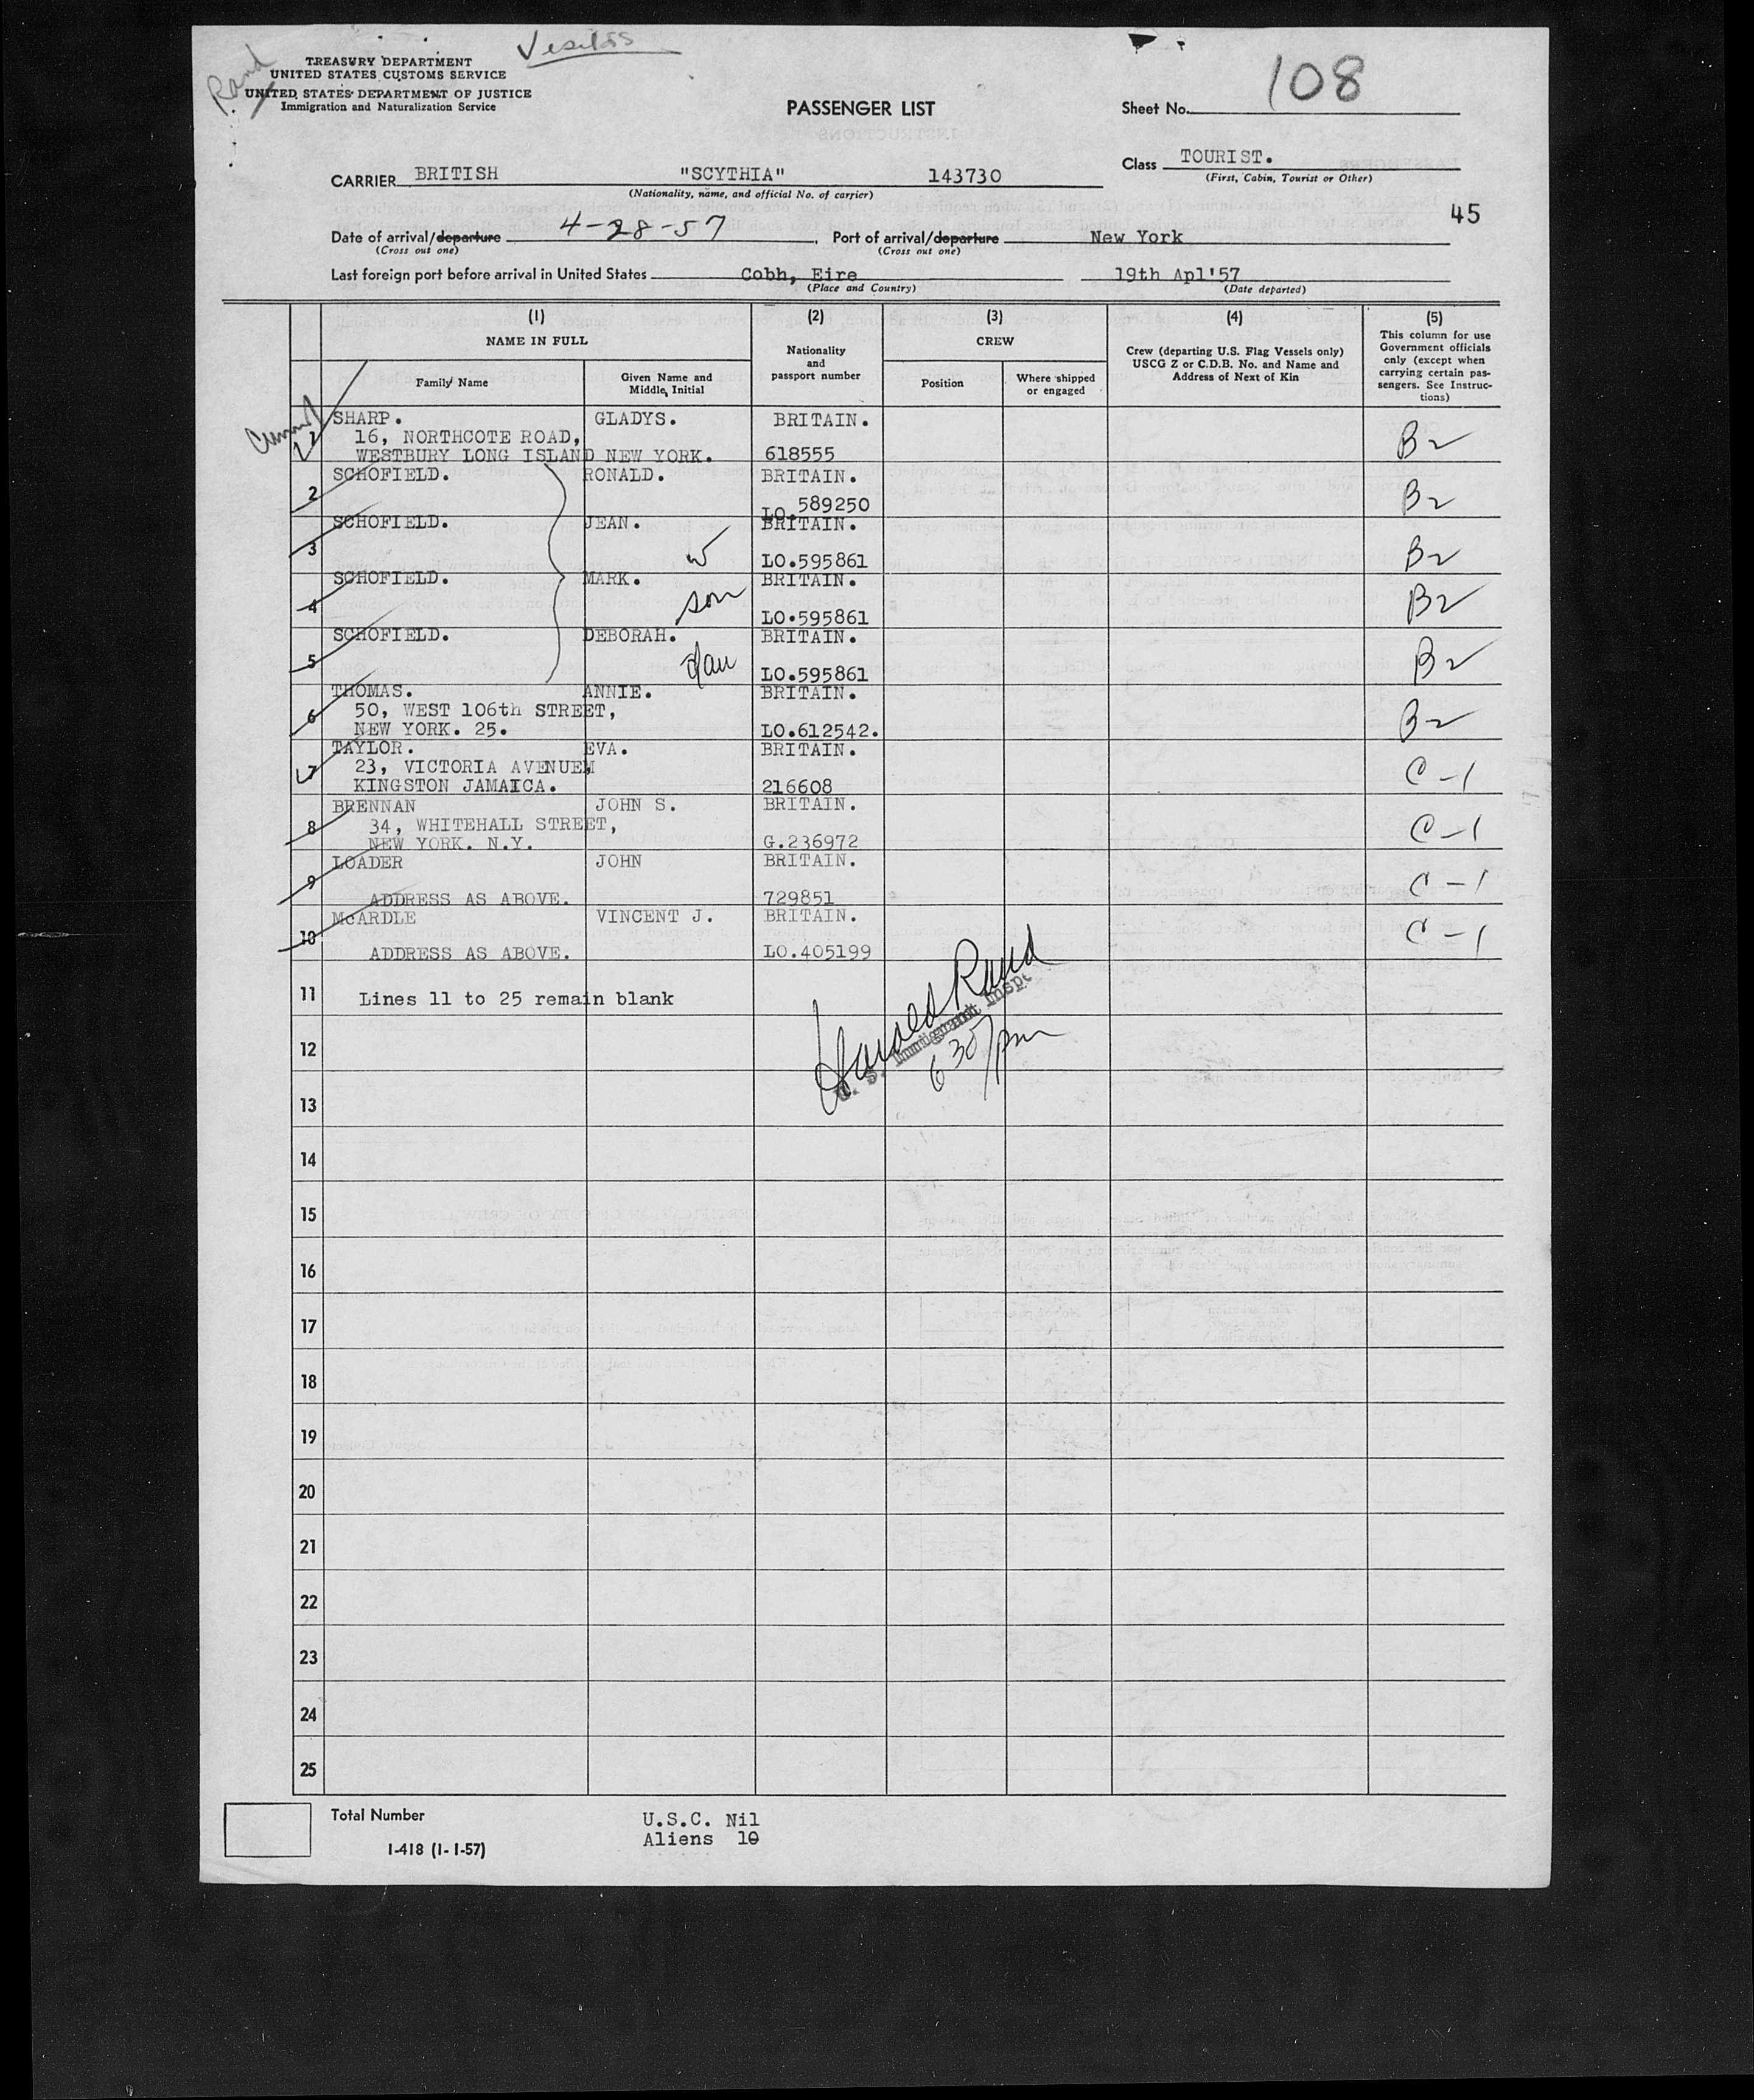 Visitors
Rand
TREASURY DEPARTMENT
UNITED STATES CUSTOMS SERVICE
UNITED STATES DEPARTMENT OF JUSTICE
Immigration and Naturalization Service
PASSENGER LIST
Sheet No. 108
Class TOURIST.
(First, Cabin, Tourist or Other)
CARRIER BRITISH "SCYTHIA" 143730
(Nationality, name, and official No. of carrier)
45
Date of arrival/departure 4-28-57, Port of arrival/departure New York
(Cross out one) (Cross out one)
Last foreign port before arrival in United States Cobh, Eire 19th Apl'57
(Place and Country) (Date departed)
(1) (2) (3) (4) (5)
NAME IN FULL
Family Name
Given Name and
Middle, Initial
Nationality
and
passport number
CREW
Position
Where shipped
or engaged
Crew (departing U.S. Flag Vessels only)
USCG Z or C.D.B. No. and Name and
Address of Next of Kin
This column for use
Government officials
only (except when
carrying certain pas-
sengers. See Instruc-
tions)
1 SHARP. GLADYS. BRITAIN. B2
16, NORTHCOTE ROAD,
WESTBURY LONG ISLAND NEW YORK. 618555
2 SCHOFIELD. RONALD. BRITAIN. B2
LO.589250
3 SCHOFIELD. JEAN. BRITAIN. B2
w LO.595861
4 SCHOFIELD. MARK. BRITAIN. B2
son LO.595861
5 SCHOFIELD. DEBORAH. BRITAIN. B2
dau LO.595861
6 THOMAS. ANNIE. BRITAIN. B2
50, WEST 106th STREET,
NEW YORK. 25. LO.612542.
7 TAYLOR. EVA. BRITAIN. C-1
23, VICTORIA AVENUE
KINGSTON JAMAICA. 216608
8 BRENNAN JOHN S. BRITAIN. C-1
34, WHITEHALL STREET,
NEW YORK. N.Y. G.236972
9 LOADER JOHN BRITAIN. C-1
ADDRESS AS ABOVE. 729851
10 McARDLE VINCENT J. BRITAIN. C-1
ADDRESS AS ABOVE. LO.405199
11 Lines 11 to 25 remain blank
Harold Rand
U. S. Immigrant Inspt
630/pm
12
13
14
15
16
17
18
19
20
21
22
23
24
25
Total Number
U.S.C. Nil
Aliens 10
I-418 (1-1-57)